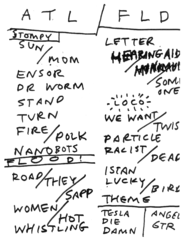 ATL / FLD
STOMPY
SUN / MOM
ENSOR
DR WORM
STAND
TURN
FIRE / POLK
NANOBOTS
FLOOD!
ROAD / THEY
SAPP
WOMEN / HOT
WHISTLING
LETTER
HEARING AID
SOMEONE
LOCO
WE WANT
TWIS
PARTICLE
RACIST / DEAD
ISTAN
LUCKY / BIRD
THEME
TESLA
DIE
DAMN
ANGEL
GTR